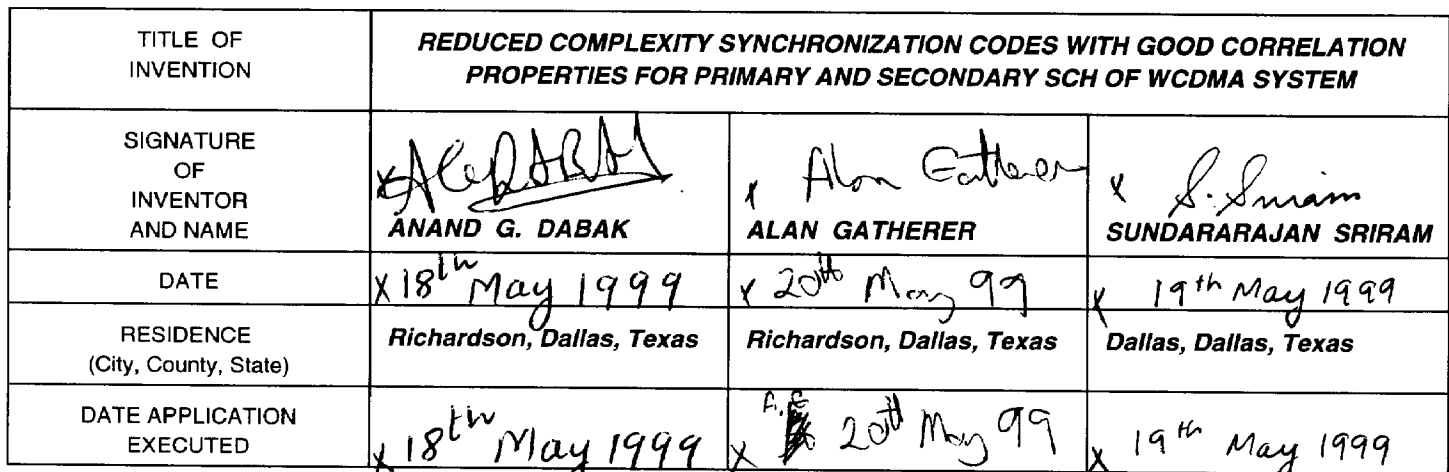 TITLE OF
INVENTION
REDUCED COMPLEXITY SYNCHRONIZATION CODES WITH GOOD CORRELATION
PROPERTIES FOR PRIMARY AND SECONDARY SCH OF WCDMA SYSTEM
SIGNATURE
OF
INVENTOR
AND NAME
x
ANAND G. DABAK
x Alan Gatherer
ALAN GATHERER
x S. Sriram
SUNDARARAJAN SRIRAM
DATE
x 18th May 1999
x 20th May 99
x 19th May 1999
RESIDENCE
(City, County, State)
Richardson, Dallas, Texas
Richardson, Dallas, Texas
Dallas, Dallas, Texas
DATE APPLICATION
EXECUTED
x 18th May 1999
x 20th May 99
x 19th May 1999